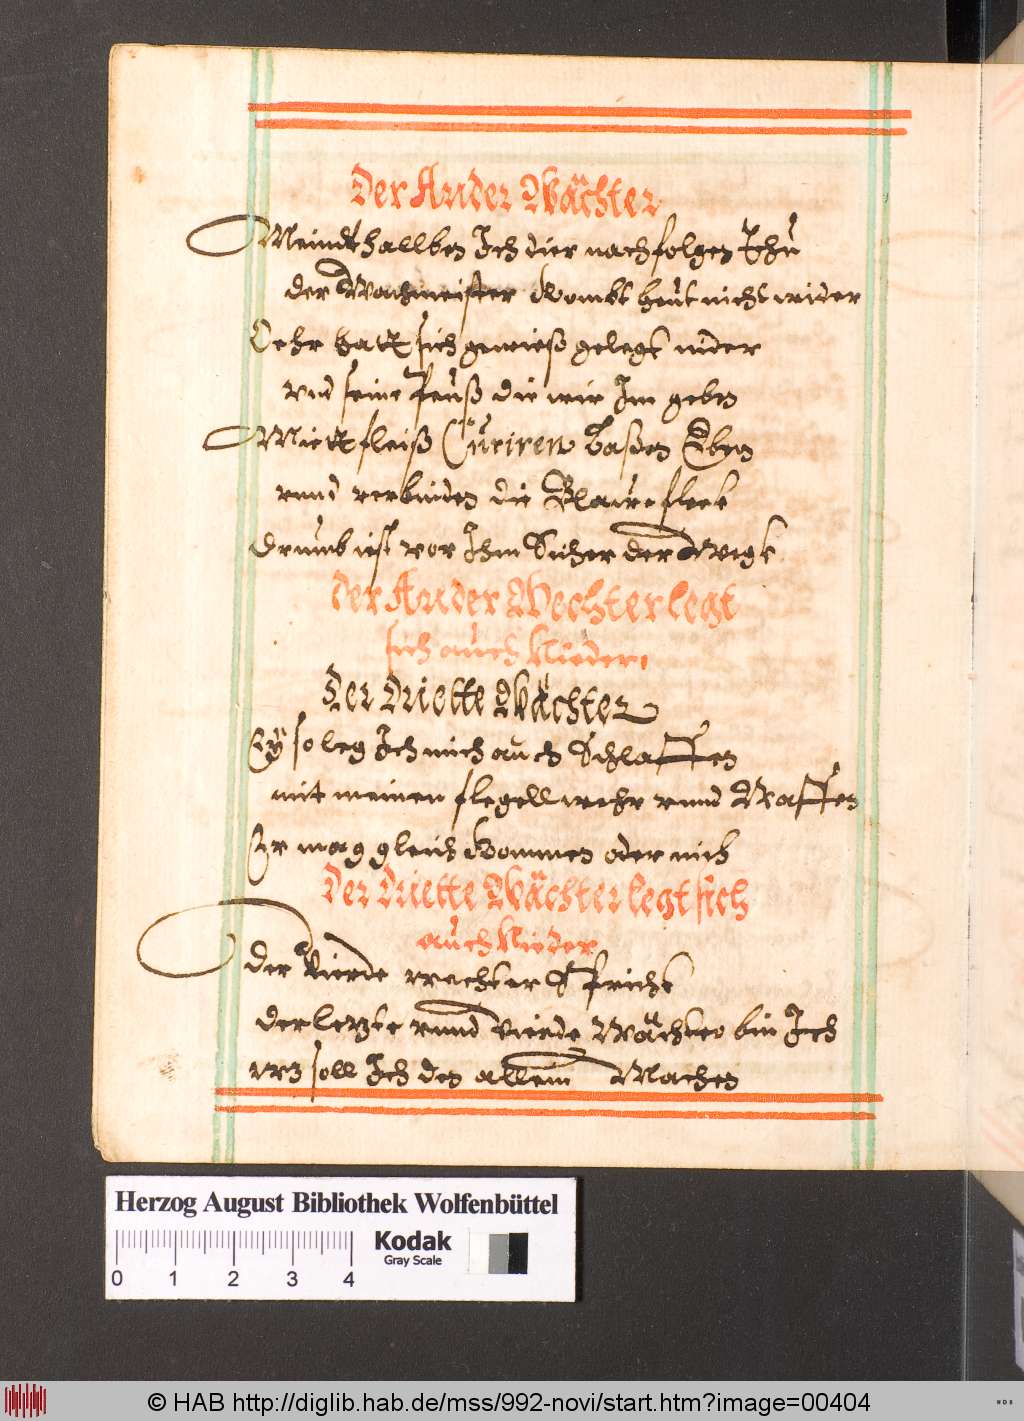 Der Ander Wächter
Meindthallben Ich dier nachfolgen Thu
der Wachmeister kombt heut nicht wider
Oehr hatt sich gewieß gelegt nider
vnd seine die wir Im geben
Mitt fleiß Cüriren laßen Eben
vnnd verbinden die Blaue fleck
drumb ist vor Ihm Sicher der Wegk
der Ander Wechter legt
sich auch Nieder.
Der Driette Wächter
Ey so leg Ich mich auch Schlaffen
mit meinen flegell wehr vnnd Waffen
Er mag gleich kommen oder nich
Der Driette Wächter legt sich
auch Nieder
Der Vierde wechter Spricht
der letzte vnnd vierde Wächter bin Ich
soll Ich den allein Machen
Herzog August Bibliothek Wolfenbüttel
Kodak
Gray Scale
0 1 2 3 4
© HAB http://diglib.hab.de/mss/992-novi/start.htm?image=00404